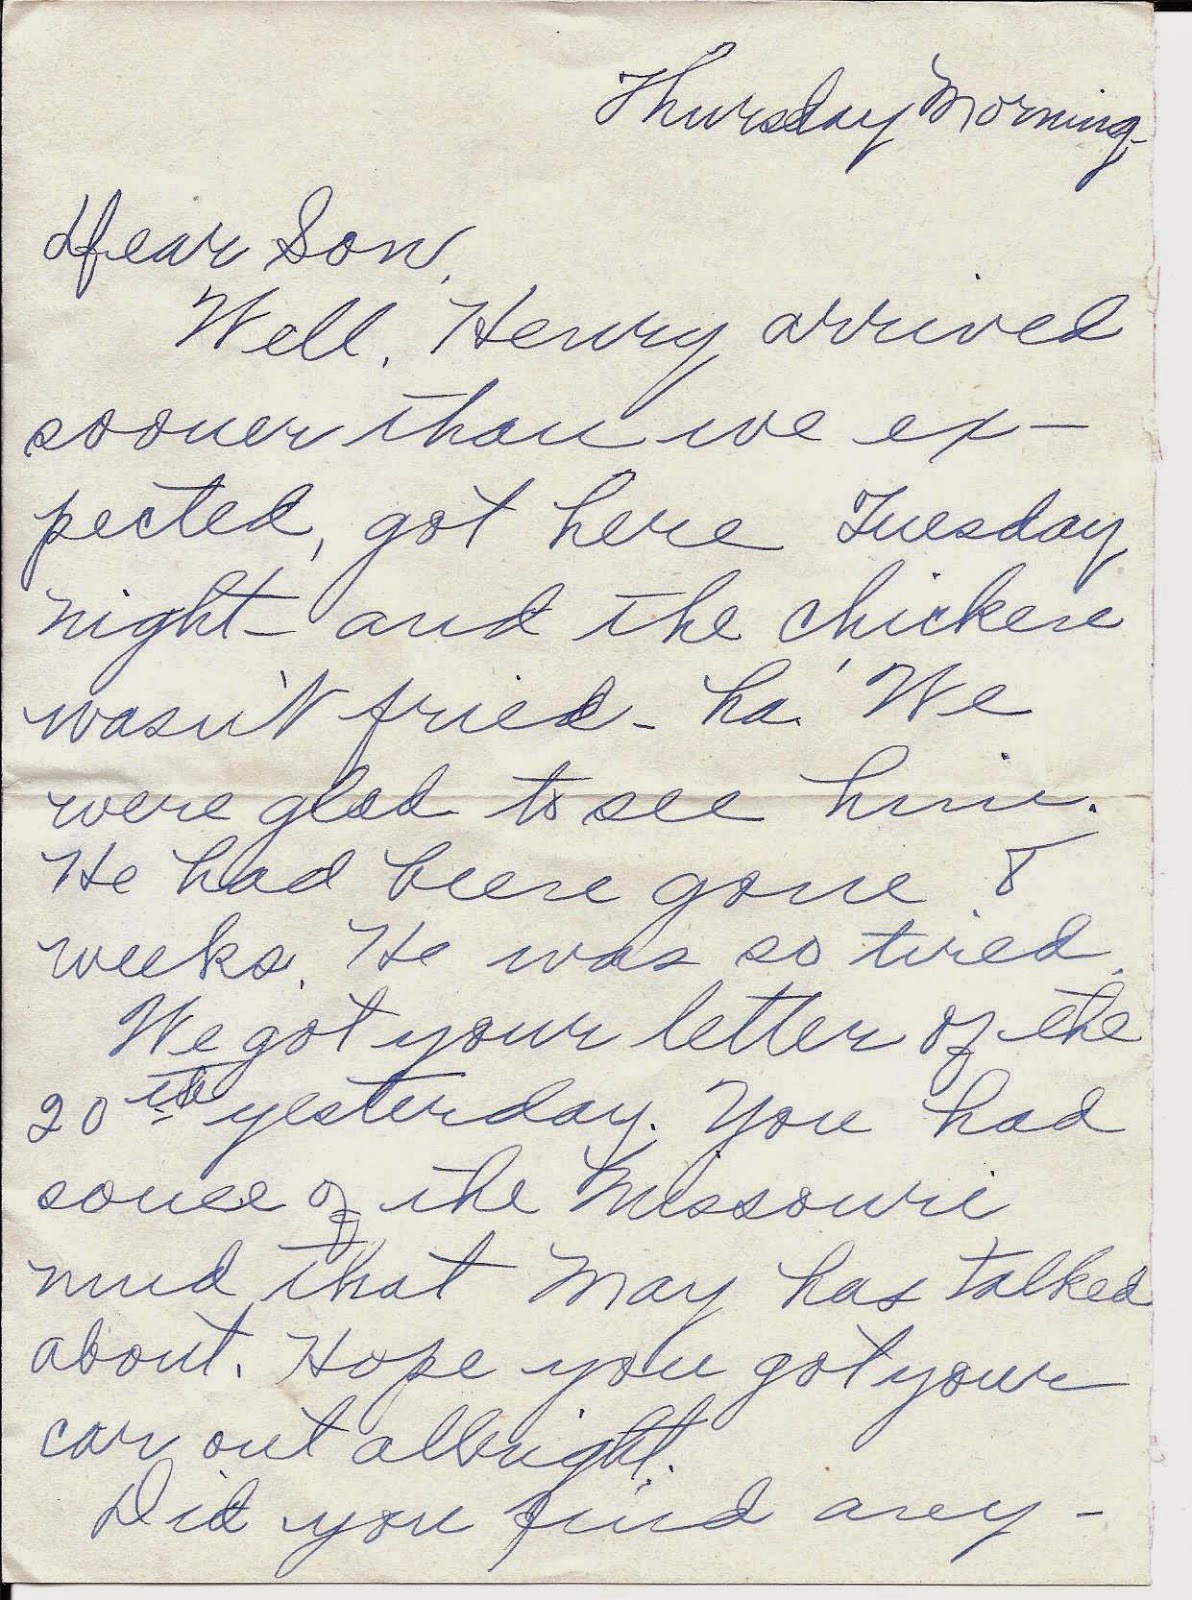 Thursday Morning-
Dear Son,
Well, Henry arrived
sooner than we ex-
pected, got here Tuesday
night- and the chicken
wasn't fried- ha! We
were glad to see him.
He had been gone 8
weeks. He was so tired.
We got your letter of the
20th yesterday. You had
some of the Missouri
mud that May has talked
about. Hope you got your
car out allright.
Did you find any-